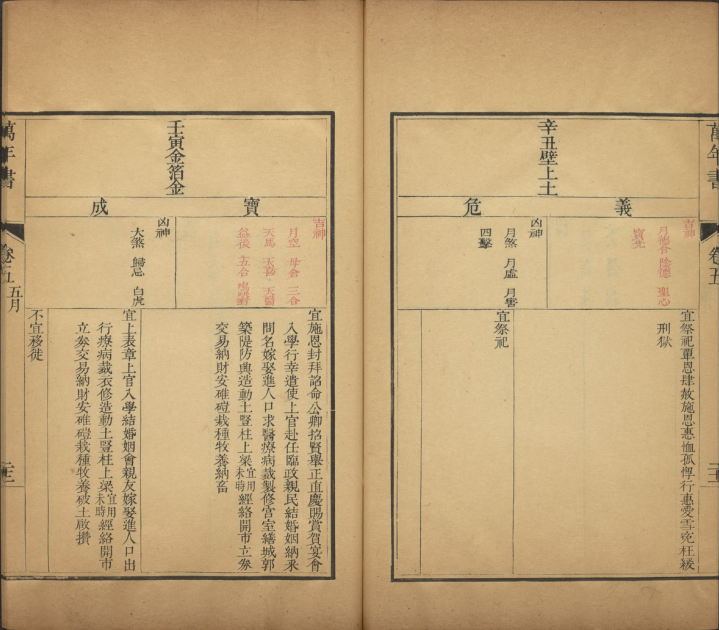 萬年書
卷五
辛丑壁上土
義
危
吉神
月德合 陰德 聖心
寶光
凶神
月煞 月虛 月害
四擊
宜祭祀覃恩肆赦施恩惠恤孤惸行惠愛雪冤枉緩
刑獄
宜祭祀
壬寅金箔金
寶
成
吉神
月空 母倉 三合
天馬 天喜 天醫
益後 五合 鳴吠對
凶神
大煞 歸忌 白虎
宜施恩封拜詔命公卿招賢舉正直慶賜賞賀宴會
入學行幸遣使上官赴任臨政親民結婚姻納采
問名嫁娶進人口求醫療病裁製修宮室繕城郭
築隄防興造動土豎柱上梁宜用未時經絡開市立券
交易納財安碓磑栽種牧養納畜
宜上表章上官入學結婚姻會親友嫁娶進人口出
行療病裁衣修造動土豎柱上梁宜用未時經絡開市
立券交易納財安碓磑栽種牧養破土啟攢
不宜移徙
萬年書
卷五
五月